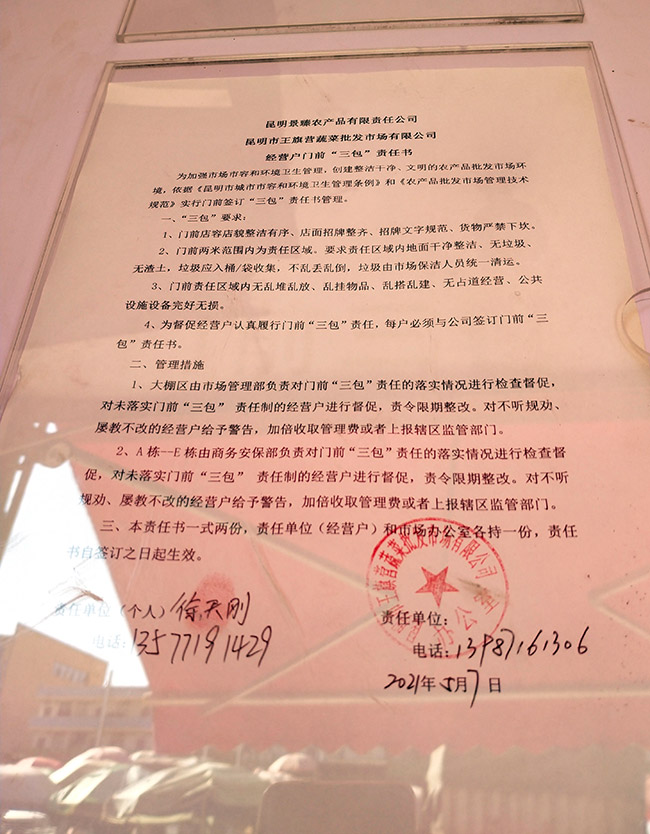 昆明景臻农产品有限责任公司
昆明市王旗营蔬菜批发市场有限公司
经营户门前“三包”责任书
为加强市场市容和环境卫生管理，创建整洁干净、文明的农产品批发市场环
境，依据《昆明市城市市容和环境卫生管理条例》和《农产品批发市场管理技术
规范》实行门前签订“三包”责任书管理。
一、“三包”要求：
1、门前店容店貌整洁有序、店面招牌整齐、招牌文字规范、货物严禁下坎。
2、门前两米范围内为责任区域。要求责任区域内地面干净整洁、无垃圾、
无渣土，垃圾应入桶/袋收集，不乱丢乱倒，垃圾由市场保洁人员统一清运。
3、门前责任区域内无乱堆乱放、乱挂物品、乱搭乱建、无占道经营、公共
设施设备完好无损。
4、为督促经营户认真履行门前“三包”责任，每户必须与公司签订门前“三
包”责任书。
二、管理措施
1、大棚区由市场管理部负责对门前“三包”责任的落实情况进行检查督促，
对未落实门前“三包” 责任制的经营户进行督促，责令限期整改。对不听规劝、
屡教不改的经营户给予警告，加倍收取管理费或者上报辖区监管部门。
2、A 栋--E 栋由商务安保部负责对门前“三包”责任的落实情况进行检查督
促，对未落实门前“三包” 责任制的经营户进行督促，责令限期整改。对不听
规劝、屡教不改的经营户给予警告，加倍收取管理费或者上报辖区监管部门。
三、本责任书一式两份，责任单位（经营户）和市场办公室各持一份，责任
书自签订之日起生效。
王旗营蔬菜批发市场有限公司
办公室
责任单位（个人）徐天刚
责任单位：
电话：13577191429
电话：13987161306
2021年5月7日